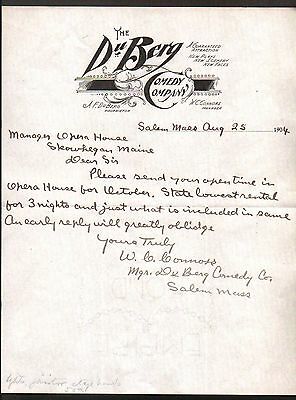 THE
Du Berg
COMEDY
COMPANY
A GUARANTEED
ATTRACTION
NEW PLAYS
NEW SCENERY
NEW FACES
A.P. DUBERG
PROPRIETOR
W.C. CONNORS
MANAGER
Salem Mass Aug 25 1904.
Manager Opera House
Skowhegan Maine
Dear Sir
Please send your open time in
Opera House for October. State lowest rental
for 3 nights and just what is included in same
An early reply will greatly oblidge
Yours Truly
W. C. Connors
Mgr. Du Berg Comedy Co.
Salem Mass